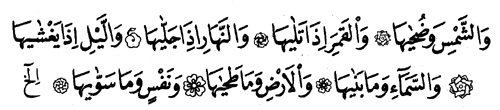 وَالشَّمْسِ وَضُحٰيهَا ۞ وَالْقَمَرِ اِذَا تَلٰيهَا ۞ وَالنَّهَارِ اِذَا جَلّٰيهَا ۞ وَالَّيْلِ اِذَا يَغْشٰيهَا
۞ وَالسَّمَٓاءِ وَمَا بَنٰيهَا ۞ وَالْاَرْضِ وَمَا طَحٰيهَا ۞ وَنَفْسٍ وَمَا سَوّٰيهَا ۞ الخ